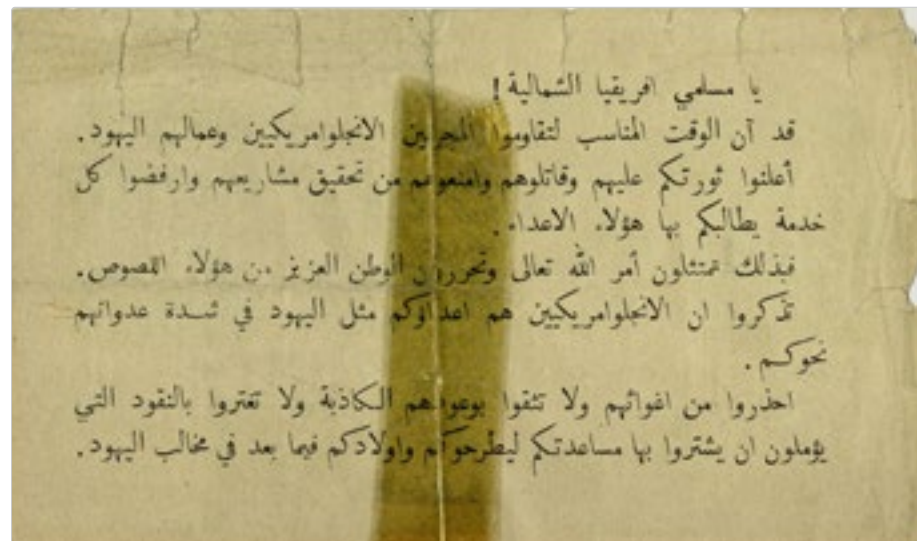 يا مسلمي افريقيا الشمالية !
قد آن الوقت المناسب لتقاوموا المجرمين الانجلوامريكيين وعمالهم اليهود.
أعلنوا ثورتكم عليهم وقاتلوهم وامنعوهم من تحقيق مشاريعهم وارفضوا كل
خدمة يطالبكم بها هؤلاء الاعداء.
فبذلك تمتثلون أمر الله تعالى وتحررون الوطن العزيز من هؤلاء اللصوص.
تذكروا ان الانجلوامريكيين هم اعداؤكم مثل اليهود في شدة عدوانهم
نحوكم.
احذروا من اغوائهم ولا تثقوا بوعودهم الكاذبة ولا تغتروا بالنقود التي
يؤملون ان يشتروا بها مساعدتكم ليطرحوكم واولادكم فيما بعد في مخالب اليهود.